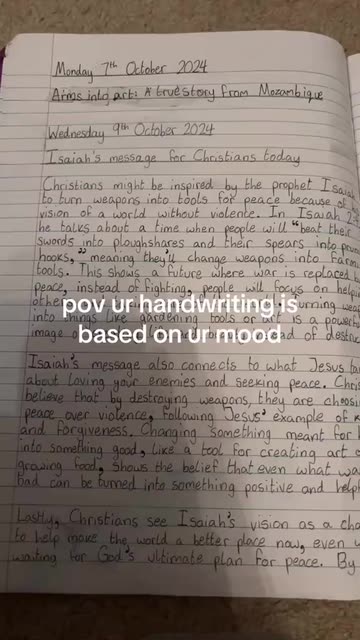 Monday 7th October 2024
Arms into art: A true story from Mozambique
Wednesday 9th October 2024
Isaiah's message for Christians today
Christians might be inspired by the prophet Isaiah
to turn weapons into tools for peace because of
vision of a world without violence. In Isaiah 2
he talks about a time when people will "beat their
swords into ploughshares and their spears into
hooks," meaning they'll change weapons into farm
tools. This shows a future where war is replaced
peace, instead of fighting, people will focus on help
pov ur handwriting is
based on ur mood
into things like gardening tools or art is a powerful
image of
instead of destruc
Isaiah's message also connects to what Jesus
about loving your enemies and seeking peace. Chris
believe that by destroying weapons, they are choosing
peace over violence, following Jesus' example of
and forgiveness. Changing something meant for
into something good, like a tool for creating art
growing food, shows the belief that even what wa
bad can be turned into something positive and helpf
Lastly, Christians see Isaiah's vision as a cha
to help make the world a better place now, even
waiting for God's ultimate plan for peace. By